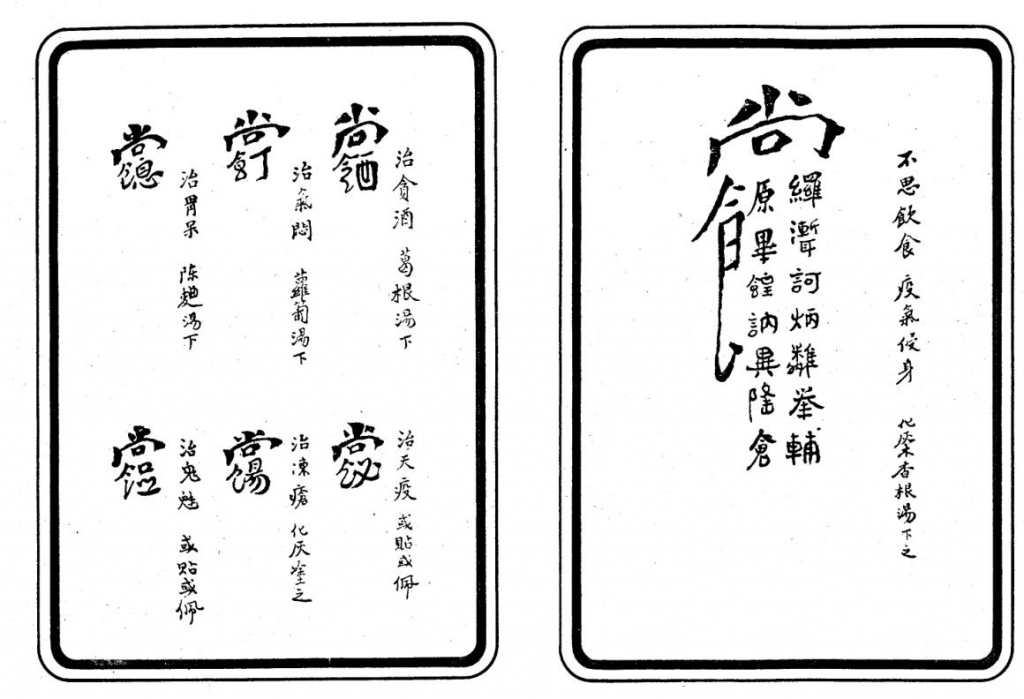 不思飲食 疫氣侵身 化 根湯下之
尚食
羅 訶炳 举輔
原畢 訥異隆倉
治貪酒 葛根湯下
治氣悶 蘿蔔湯下
治胃呆 陈麯湯下
治天疫 或貼或佩
治凍瘡 化灰塗之
治鬼魅 或貼或佩